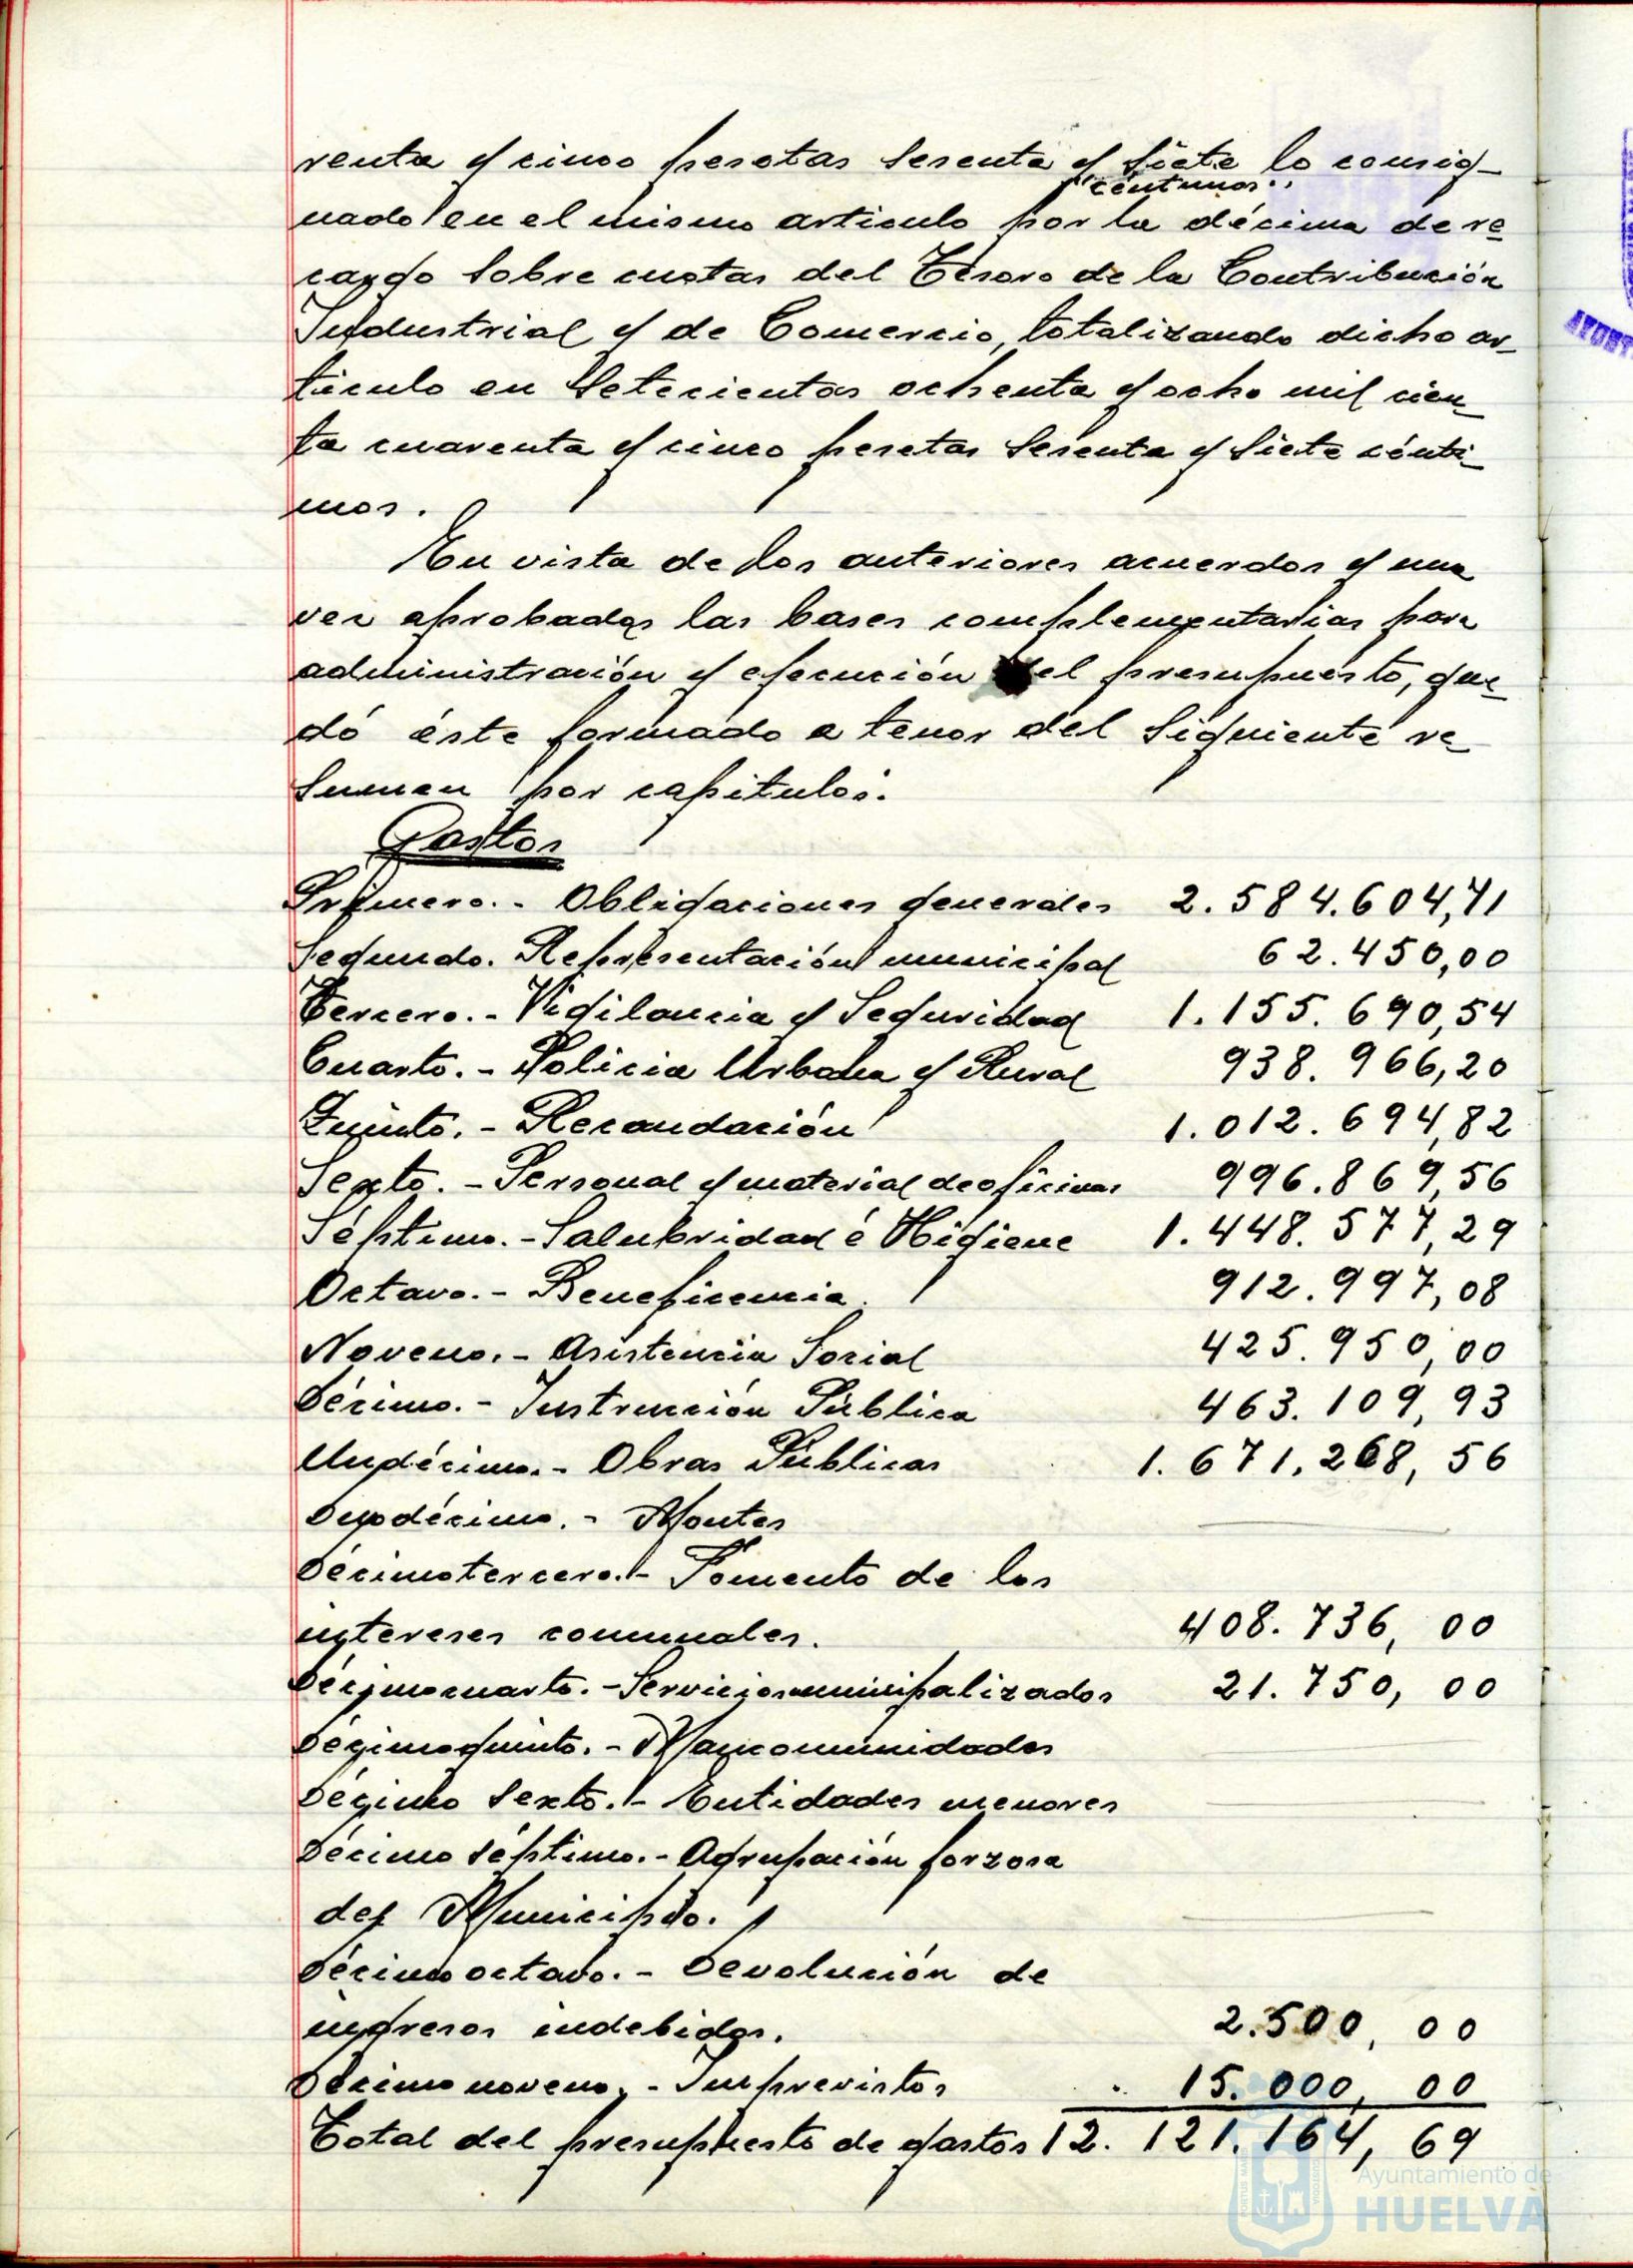 renta y cinco pesetas sesenta y siete lo consig-
céntimos
nado en el mismo articulo por la décima de re
cargo sobre cuotas del Tesoro de la Contribución
Industrial y de Comercio, totalizando dicho ar-
ticulo en setecientas ochenta y ocho mil cien-
ta cuarenta y cinco pesetas sesenta y siete cénti-
mos.
En vista de los anteriores acuerdos y una
vez aprobadas las bases complementarias para
administración y ejecución del presupuesto, que-
dó éste formado a tenor del siguiente re-
sumen por capitulos:
Gastos
Primero.- Obligaciones generales 2.584.604,71
Segundo. Representación municipal 62.450,00
Tercero.- Vigilancia y Seguridad 1.155.690,54
Cuarto.- Policia Urbana y Rural 938.966,20
Quinto.- Recaudación 1.012.694,82
Sexto.- Personal y material de oficinas 996.869,56
Séptimo.- Salubridad é Higiene 1.448.577,29
Octavo.- Beneficencia. 912.997,08
Noveno.- Asistencia Social 425.950,00
Décimo.- Instrucción Pública 463.109,93
Undécimo.- Obras Públicas 1.671.268,56
Duodécimo.- Montes
Décimotercero.- Fomento de los
intereses comunales. 408.736,00
Décimocuarto.- Servicios municipalizados 21.750,00
Décimoquinto.- Mancomunidades
Décimo sexto.- Entidades menores
Décimo séptimo.- Agrupación forzosa
del Municipio.
Décimo octavo.- Devolución de
ingresos indebidos. 2.500,00
Décimo noveno.- Imprevistos 15.000,00
Total del presupuesto de gastos 12.121.164,69
Ayuntamiento de
HUELVA